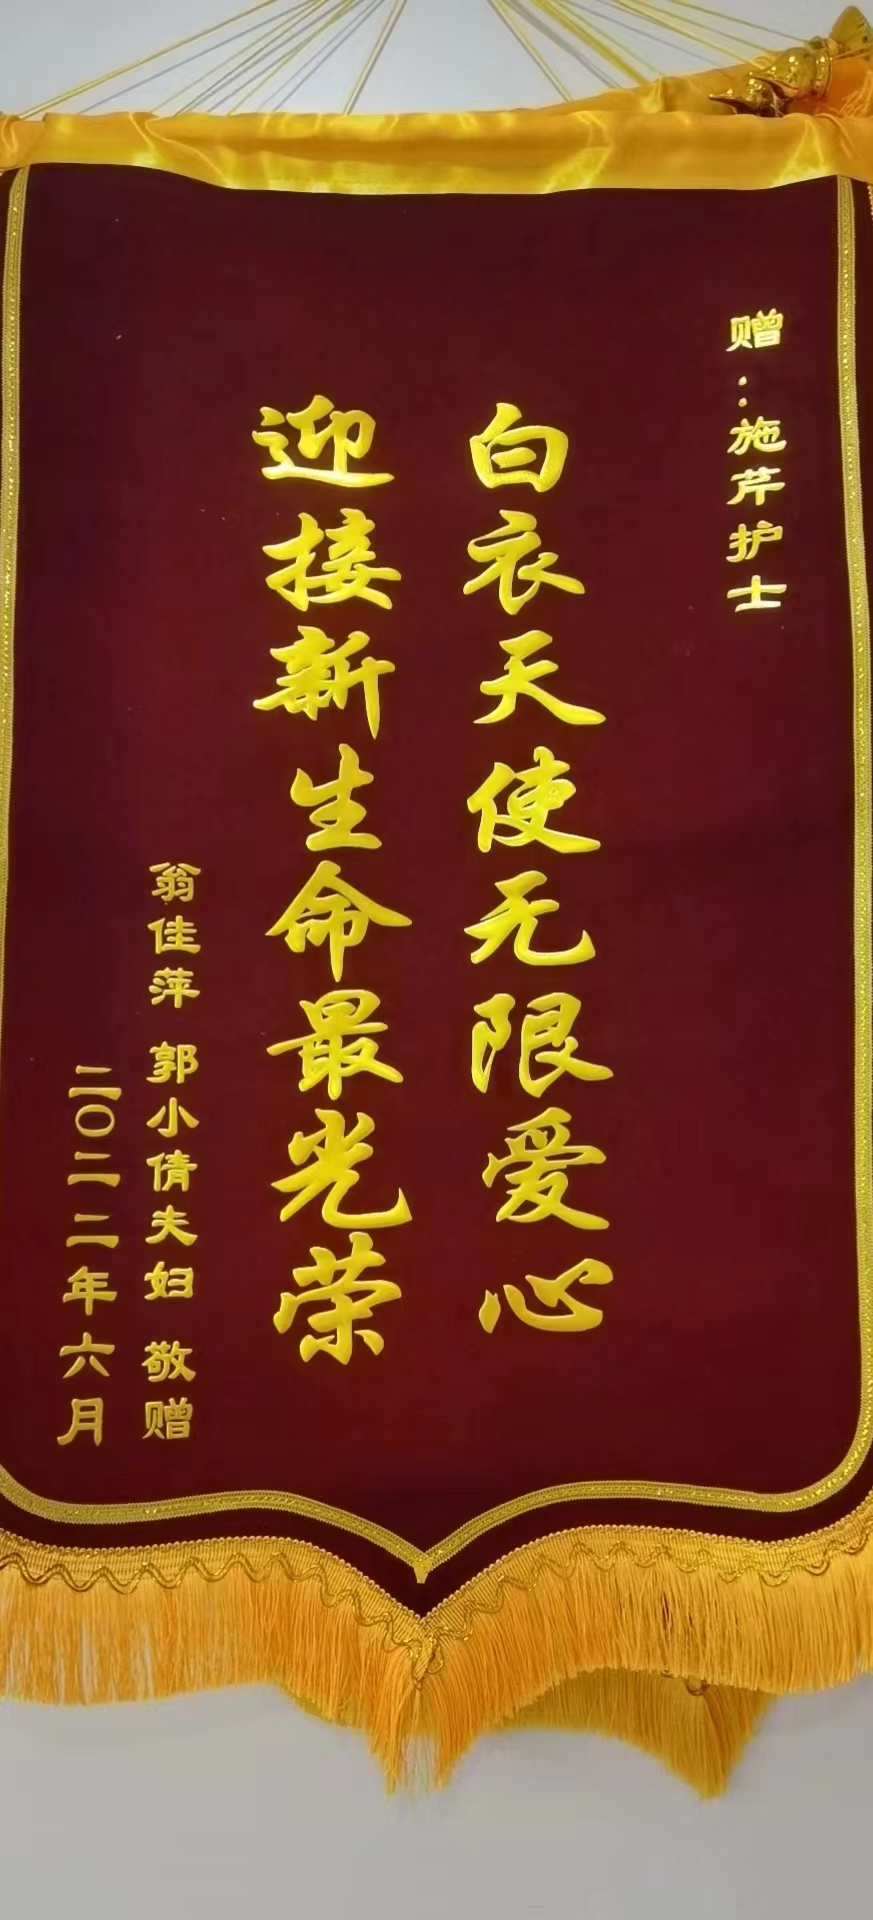 赠：施芹护士
白衣天使无限爱心
迎接新生命最光荣
翁佳萍 郭小倩夫妇 敬赠
二〇二二年六月